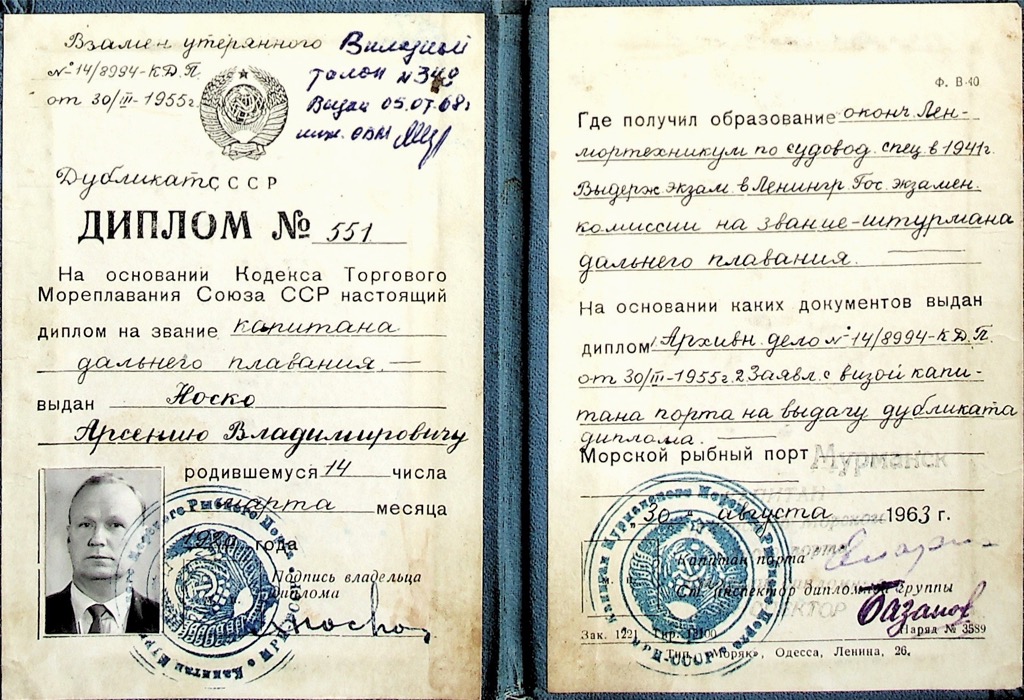 Взамен утерянного
№ 14/8994-КД.П.
от 30/III-1955г.
Вкладный
талон № 349
Выдан 05.07.68г
инж. ОВМ
Дубликат СССР
ДИПЛОМ № 551
На основании Кодекса Торгового
Мореплавания Союза ССР настоящий
диплом на звание капитана
дальнего плавания. —
выдан Носко
Арсению Владимировичу
родившемуся 14 числа
марта месяца
1920 года
Подпись владельца
диплома
Носко
Ф. В-40
Где получил образование оконч. Лен-
мортехникум по судовод. спец. в 1941г.
Выдерж. экзам. в Ленингр. Гос. экзамен.
комиссии на звание-штурмана
дальнего плавания. —
На основании каких документов выдан
диплом Архивн. дело № 14/8994-КД.П.
от 30/III-1955г. 2 Заявл. с визой капи-
тана порта на выдачу дубликата
диплома. —
Морской рыбный порт Мурманск
КАПИТАН
„30“ августа 1963 г.
Капитан порта
Ст. инспектор дипломной группы
Базанов
Зак. 1221 Тир. 12100 Наряд № 3589
Тип. «Моряк», Одесса, Ленина, 26.